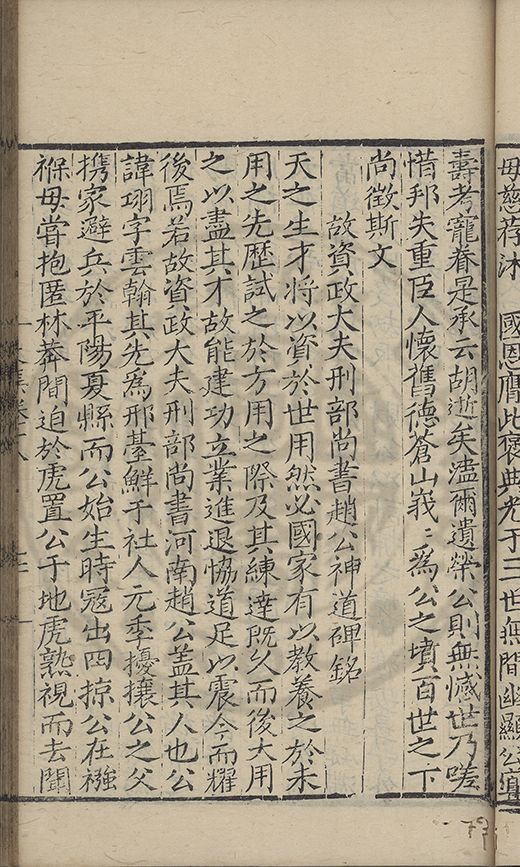 母慈荐沐 國恩膺此褒典光于三世無間幽顯公
壽考寵眷是承云胡逝矣溘爾遺榮公則無憾世乃嗟
惜邦失重臣人懷舊德蒼山峩〻為公之墳百世之下
尚徵斯文
故資政大夫刑部尚書趙公神道碑銘
天之生才將以資於世用然必國家有以教養之於未
用之先歷試之於方用之際及其練達既久而後大用
之以盡其才故能建功立業進退恊道足以震今而耀
後焉若故資政大夫刑部尚書河南趙公盖其人也公
諱翊字雲翰其先為邢臺鮮于社人元季擾攘公之父
携家避兵於平陽夏縣而公始生時寇出四掠公在襁
褓母嘗抱匿林莽間迫於虎置公于地虎熟視而去聞